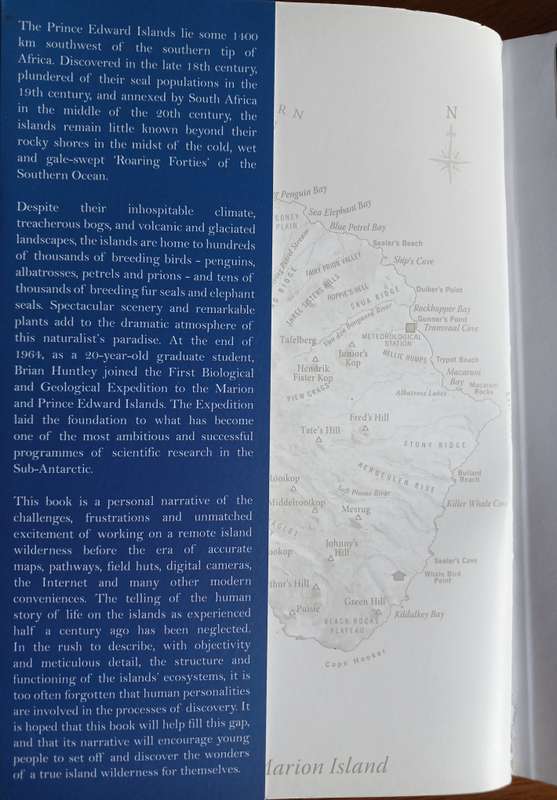 The Prince Edward Islands lie some 1400
km southwest of the southern tip of
Africa. Discovered in the late 18th century,
plundered of their seal populations in the
19th century, and annexed by South Africa
in the middle of the 20th century, the
islands remain little known beyond their
rocky shores in the midst of the cold, wet
and gale-swept 'Roaring Forties' of the
Southern Ocean.
Despite their inhospitable climate,
treacherous bogs, and volcanic and glaciated
landscapes, the islands are home to hundreds
of thousands of breeding birds - penguins,
albatrosses, petrels and prions - and tens of
thousands of breeding fur seals and elephant
seals. Spectacular scenery and remarkable
plants add to the dramatic atmosphere of
this naturalist's paradise. At the end of
1964, as a 20-year-old graduate student,
Brian Huntley joined the First Biological
and Geological Expedition to the Marion
and Prince Edward Islands. The Expedition
laid the foundation to what has become
one of the most ambitious and successful
programmes of scientific research in the
Sub-Antarctic.
This book is a personal narrative of the
challenges, frustrations and unmatched
excitement of working on a remote island
wilderness before the era of accurate
maps, pathways, field huts, digital cameras,
the Internet and many other modern
conveniences. The telling of the human
story of life on the islands as experienced
half a century ago has been neglected.
In the rush to describe, with objectivity
and meticulous detail, the structure and
functioning of the islands' ecosystems, it is
too often forgotten that human personalities
are involved in the processes of discovery. It
is hoped that this book will help fill this gap,
and that its narrative will encourage young
people to set off and discover the wonders
of a true island wilderness for themselves.
N
Penguin Bay
Sea Elephant Bay
PLAIN
Blue Petrel Bay
Sealer's Beach
Ship's Cave
FAIRY PRION VALLEY
HOPPIE'S HELL
SKUA RIDGE
Duiker's Point
Rockhopper Bay
Gunner's Point
Transvaal Cove
METEOROLOGICAL
STATION
Van den Boogaard River
Tafelberg
Junior's
Kop
NELLIE HUMPS
Trypot Beach
Hendrik
Fister Kop
Macaroni
Bay
Macaroni
Rocks
PIEW CRAGS
Albatross Lakes
Fred's Hill
Tate's Hill
STONY RIDGE
Bullard
Beach
Killer Whale Cove
Mesrug
Johnny's
Hill
Sealer's Cave
Whale Bird
Point
Green Hill
Kildalkey Bay
BEACH ROCKS
PLATEAU
Cape Hooker
Marion Island